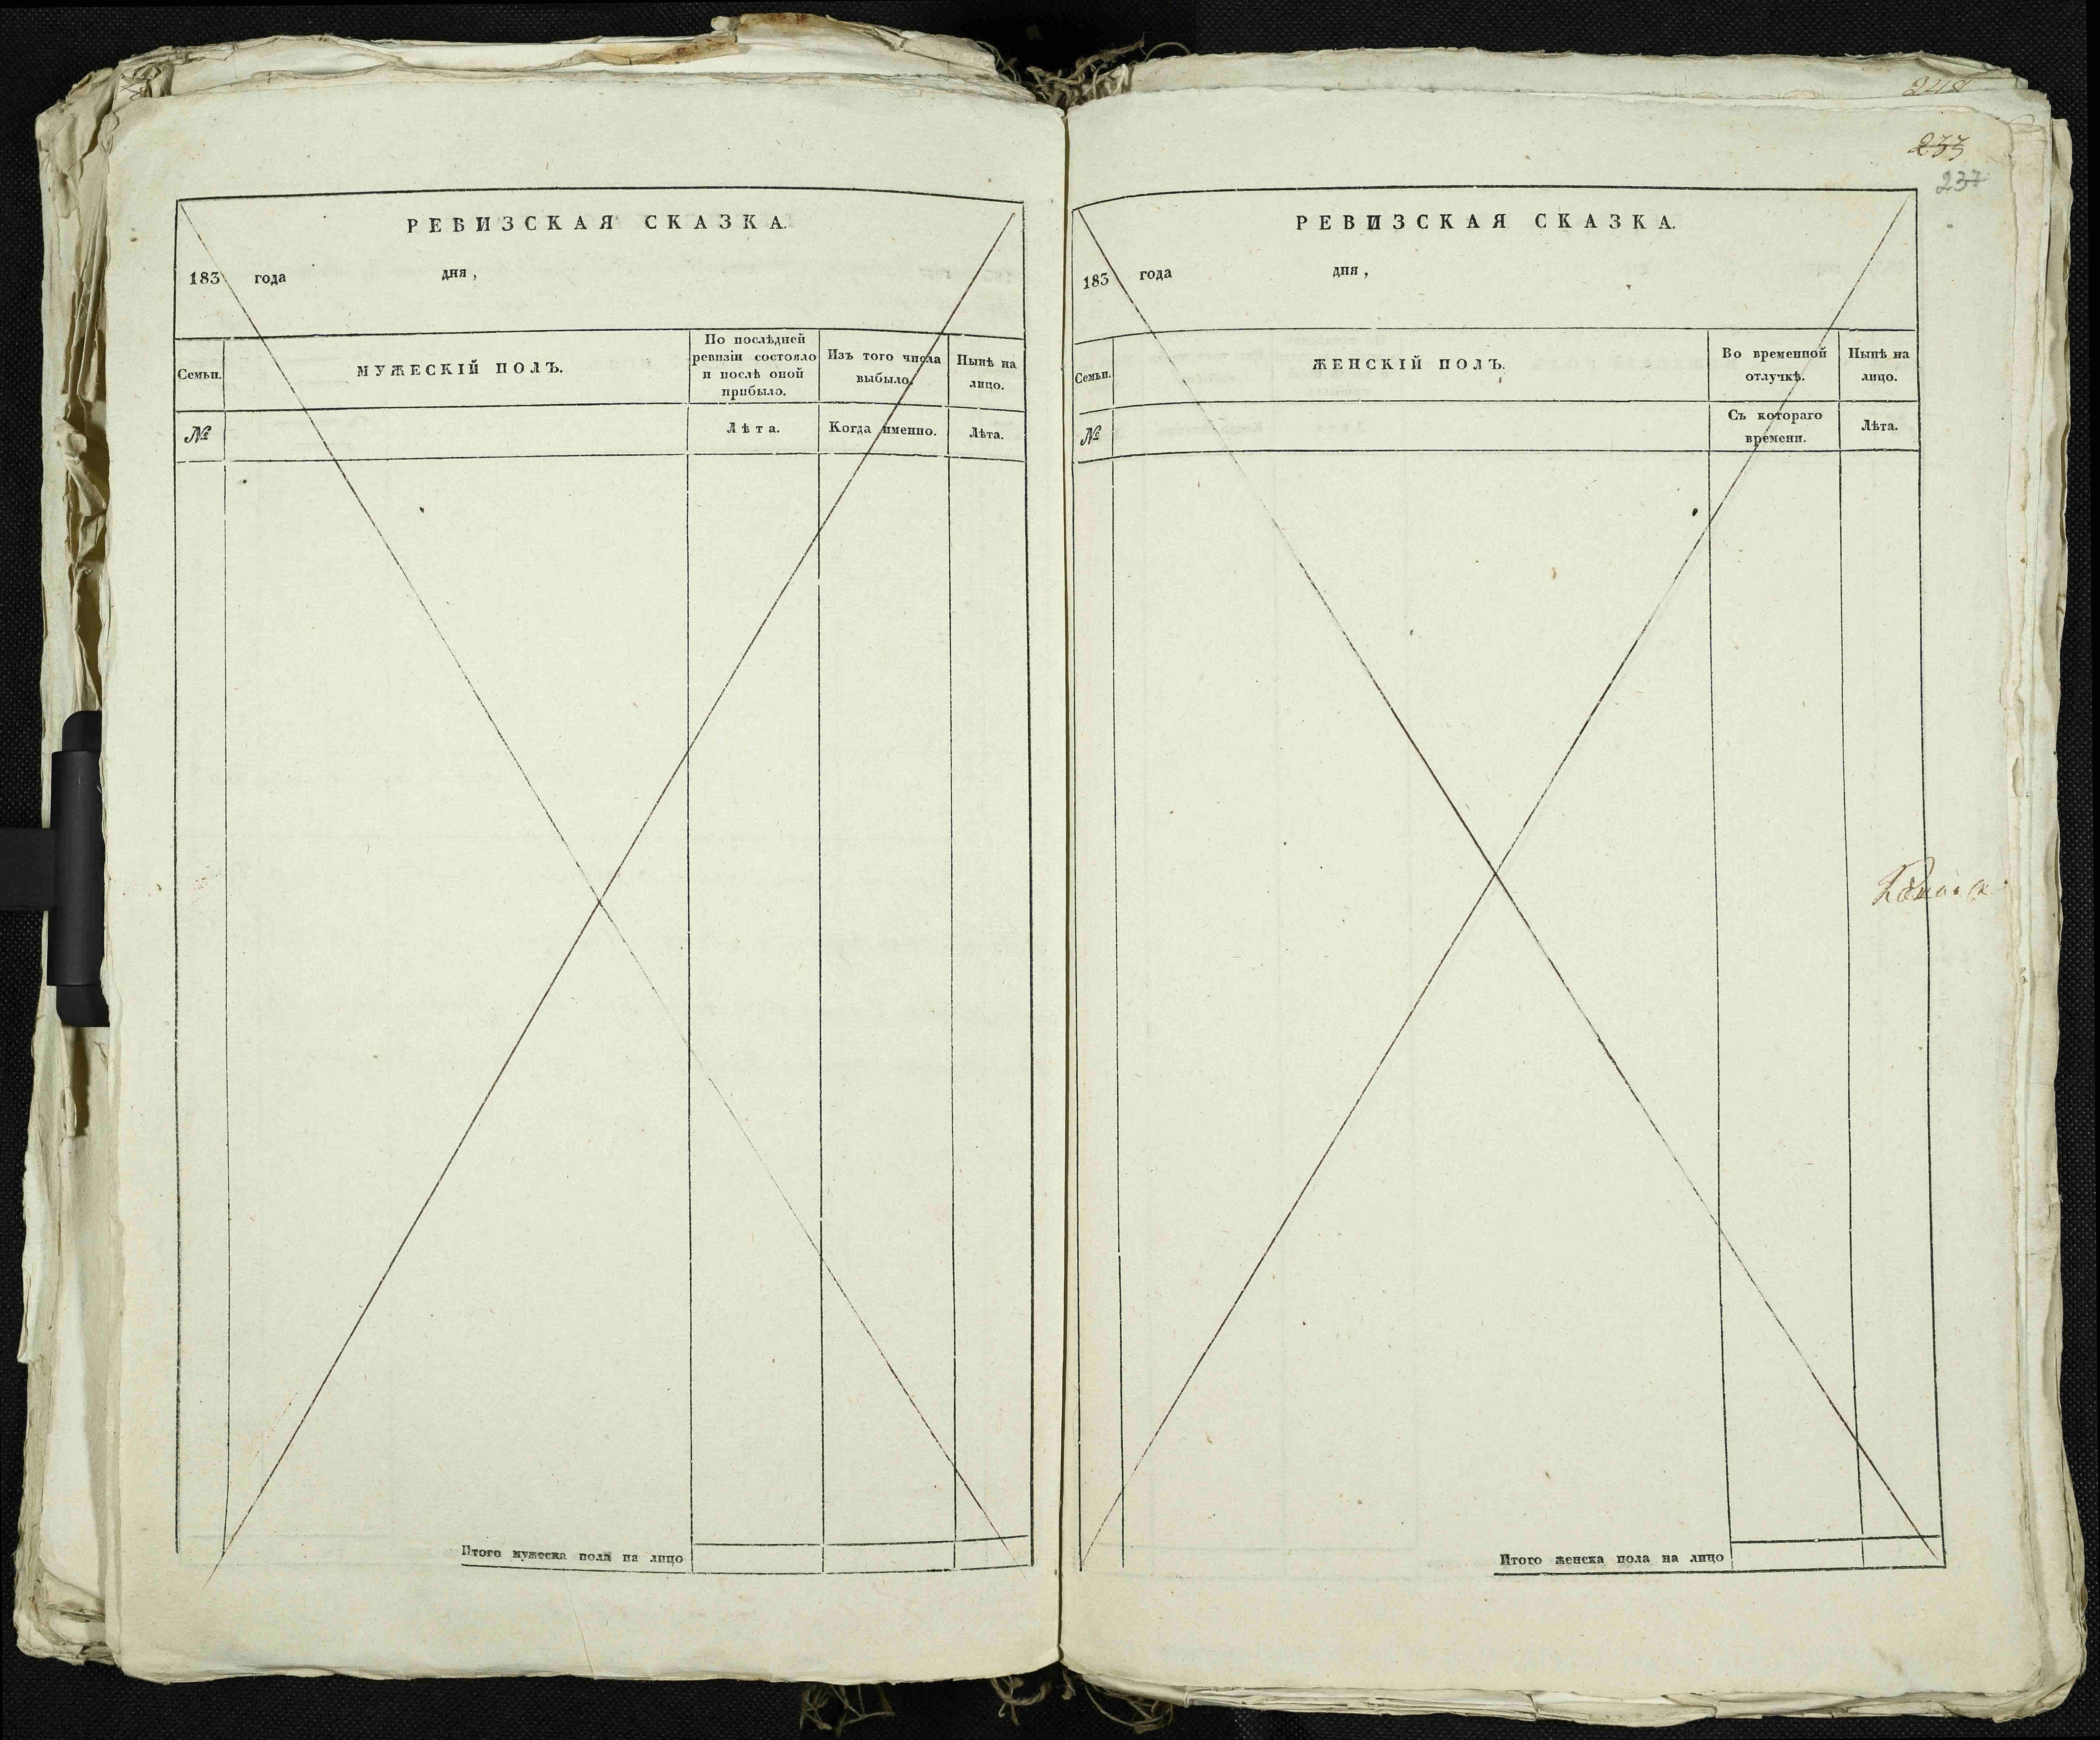 РЕВИЗСКАЯ СКАЗКА.
183 года дня,
Семьи.
МУЖЕСКІЙ ПОЛЪ.
По послѣдней
ревизіи состояло
и послѣ оной
прибыло.
Изъ того числа
выбыло.
Нынѣ на
лицо.
№
Лѣта.
Когда именно.
Лѣта.
Итого мужеска пола на лицо
237
РЕВИЗСКАЯ СКАЗКА.
183 года дня,
Семьи.
ЖЕНСКІЙ ПОЛЪ.
Во временной
отлучкѣ.
Нынѣ на
лицо.
№
Съ котораго
времени.
Лѣта.
Итого женска пола на лицо